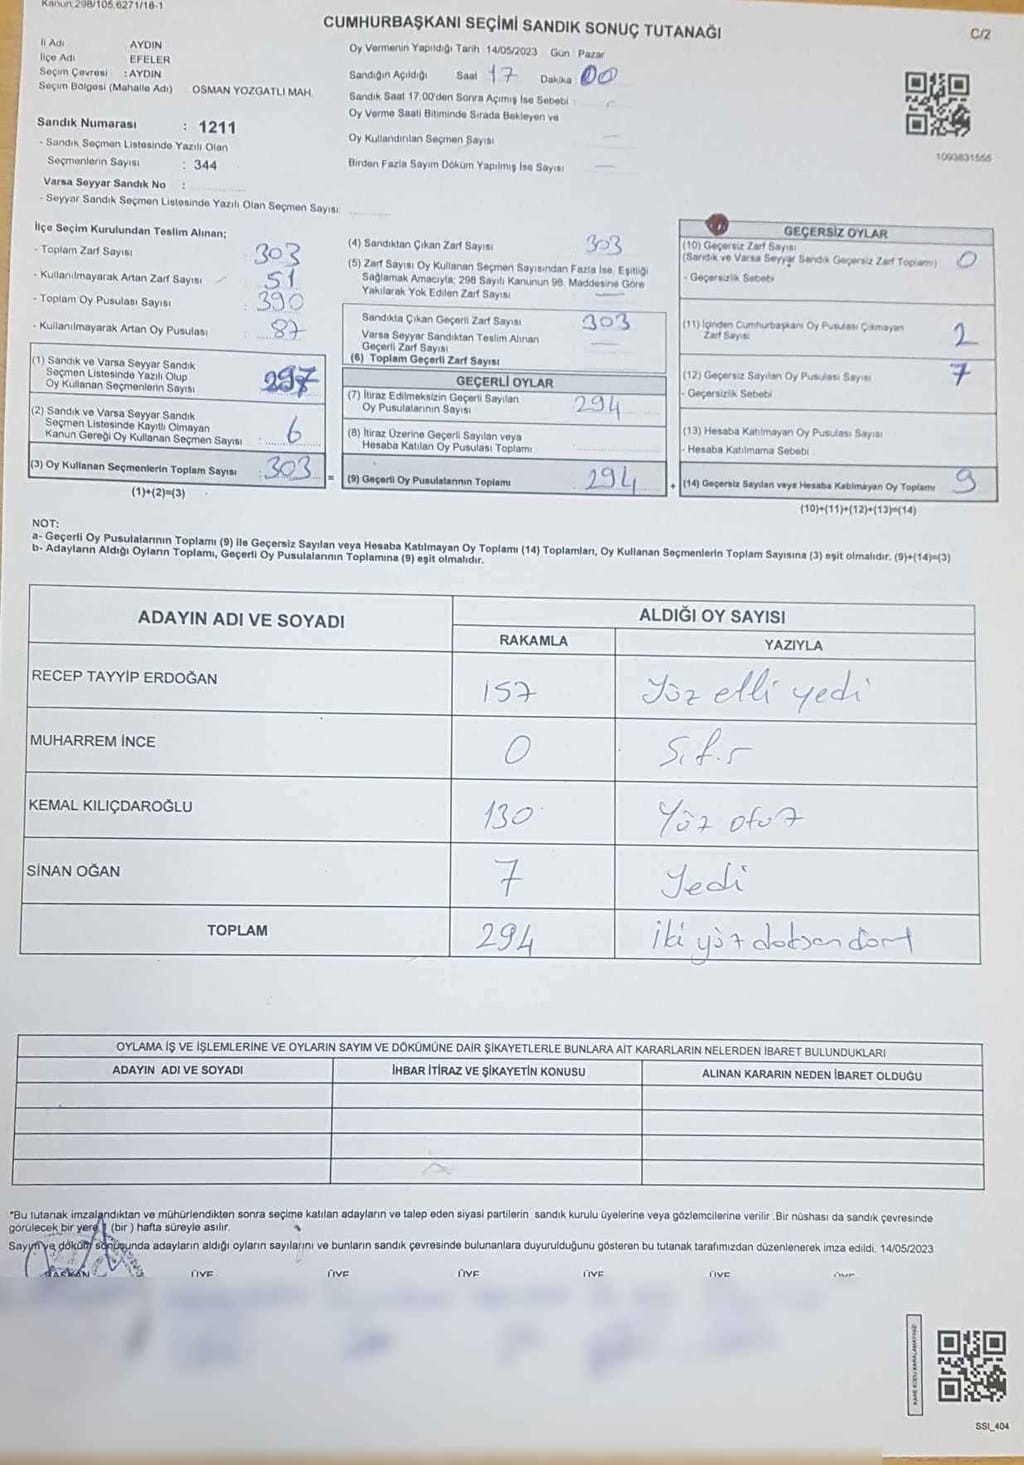 Kanun:298/105,6271/18-1
CUMHURBAŞKANI SEÇİMİ SANDIK SONUÇ TUTANAĞI
C/2
İl Adı AYDIN
İlçe Adı : EFELER
Seçim Çevresi : AYDIN
Seçim Bölgesi (Mahalle Adı) OSMAN YOZGATLI MAH.
Sandık Numarası : 1211
- Sandık Seçmen Listesinde Yazılı Olan
Seçmenlerin Sayısı : 344
Varsa Seyyar Sandık No :
- Seyyar Sandık Seçmen Listesinde Yazılı Olan Seçmen Sayısı
Oy Vermenin Yapıldığı Tarih 14/05/2023 Gün Pazar
Sandığın Açıldığı Saat 17 Dakika : 00
Sandık Saat 17.00'den Sonra Açılmış İse Sebebi
Oy Verme Saati Bitiminde Sırada Bekleyen ve
Oy Kullandırılan Seçmen Sayısı
Birden Fazla Sayım Döküm Yapılmış İse Sayısı
1093831555
İlçe Seçim Kurulundan Teslim Alınan;
- Toplam Zarf Sayısı 303
- Kullanılmayarak Artan Zarf Sayısı 51
- Toplam Oy Pusulası Sayısı : 390
- Kullanılmayarak Artan Oy Pusulası : 87
(1) Sandık ve Varsa Seyyar Sandık
Seçmen Listesinde Yazılı Olup
Oy Kullanan Seçmenlerin Sayısı 297
(2) Sandık ve Varsa Seyyar Sandık
Seçmen Listesinde Kayıtlı Olmayan
Kanun Gereği Oy Kullanan Seçmen Sayısı : 6
(3) Oy Kullanan Seçmenlerin Toplam Sayısı : 303 =
(1)+(2)=(3)
(4) Sandıktan Çıkan Zarf Sayısı 303
(5) Zarf Sayısı Oy Kullanan Seçmen Sayısından Fazla İse, Eşitliği
Sağlamak Amacıyla; 298 Sayılı Kanunun 98. Maddesine Göre
Yakılarak Yok Edilen Zarf Sayısı
Sandıkta Çıkan Geçerli Zarf Sayısı 303
Varsa Seyyar Sandıktan Teslim Alınan
Geçerli Zarf Sayısı
(6) Toplam Geçerli Zarf Sayısı
GEÇERLİ OYLAR
(7) İtiraz Edilmeksizin Geçerli Sayılan
Oy Pusulalarının Sayısı 294
(8) İtiraz Üzerine Geçerli Sayılan veya
Hesaba Katılan Oy Pusulası Toplamı
(9) Geçerli Oy Pusulalarının Toplamı 294 +
GEÇERSİZ OYLAR
(10) Geçersiz Zarf Sayısı
(Sandık ve Varsa Seyyar Sandık Geçersiz Zarf Toplamı) 0
- Geçersizlik Sebebi
(11) İçinden Cumhurbaşkanı Oy Pusulası Çıkmayan
Zarf Sayısı 2
(12) Geçersiz Sayılan Oy Pusulası Sayısı 7
- Geçersizlik Sebebi
(13) Hesaba Katılmayan Oy Pusulası Sayısı
- Hesaba Katılmama Sebebi
(14) Geçersiz Sayılan veya Hesaba Katılmayan Oy Toplamı 9
(10)+(11)+(12)+(13)=(14)
NOT:
a- Geçerli Oy Pusulalarının Toplamı (9) ile Geçersiz Sayılan veya Hesaba Katılmayan Oy Toplamı (14) Toplamları, Oy Kullanan Seçmenlerin Toplam Sayısına (3) eşit olmalıdır. (9)+(14)=(3)
b- Adayların Aldığı Oyların Toplamı, Geçerli Oy Pusulalarının Toplamına (9) eşit olmalıdır.
ADAYIN ADI VE SOYADI ALDIĞI OY SAYISI
RAKAMLA YAZIYLA
RECEP TAYYİP ERDOĞAN 157 Yüz elli yedi
MUHARREM İNCE 0 Sıfır
KEMAL KILIÇDAROĞLU 130 Yüz otuz
SİNAN OĞAN 7 Yedi
TOPLAM 294 iki yüz doksan dört
OYLAMA İŞ VE İŞLEMLERİNE VE OYLARIN SAYIM VE DÖKÜMÜNE DAİR ŞİKAYETLERLE BUNLARA AİT KARARLARIN NELERDEN İBARET BULUNDUKLARI
ADAYIN ADI VE SOYADI İHBAR İTİRAZ VE ŞİKAYETİN KONUSU ALINAN KARARIN NEDEN İBARET OLDUĞU
*Bu tutanak imzalandıktan ve mühürlendikten sonra seçime katılan adayların ve talep eden siyasi partilerin sandık kurulu üyelerine veya gözlemcilerine verilir .Bir nüshası da sandık çevresinde
görülecek bir yere 1 (bir ) hafta süreyle asılır.
Sayım ve döküm sonucunda adayların aldığı oyların sayılarını ve bunların sandık çevresinde bulunanlara duyurulduğunu gösteren bu tutanak tarafımızdan düzenlenerek imza edildi. 14/05/2023
BAŞKAN ÜYE ÜYE ÜYE ÜYE ÜYE ÜYE
KARE KODU KARALAMAYINIZ!
SSI_404